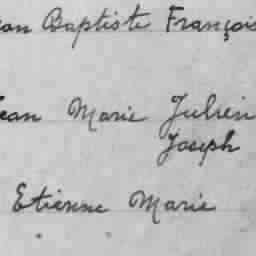 Jean Baptiste François
Jean Marie Julien
Joseph
Etienne Marie